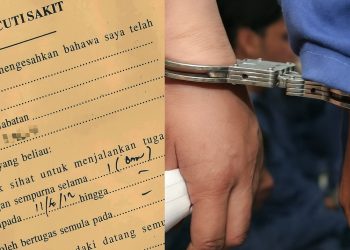 CUTI SAKIT
mengesahkan bahawa saya telah
abatan
yang beliau:
k sihat untuk menjalankan tuga
an sempurna selama 1 (
pada 11/ hingga
oleh bertugas semula pada
daki datang semu